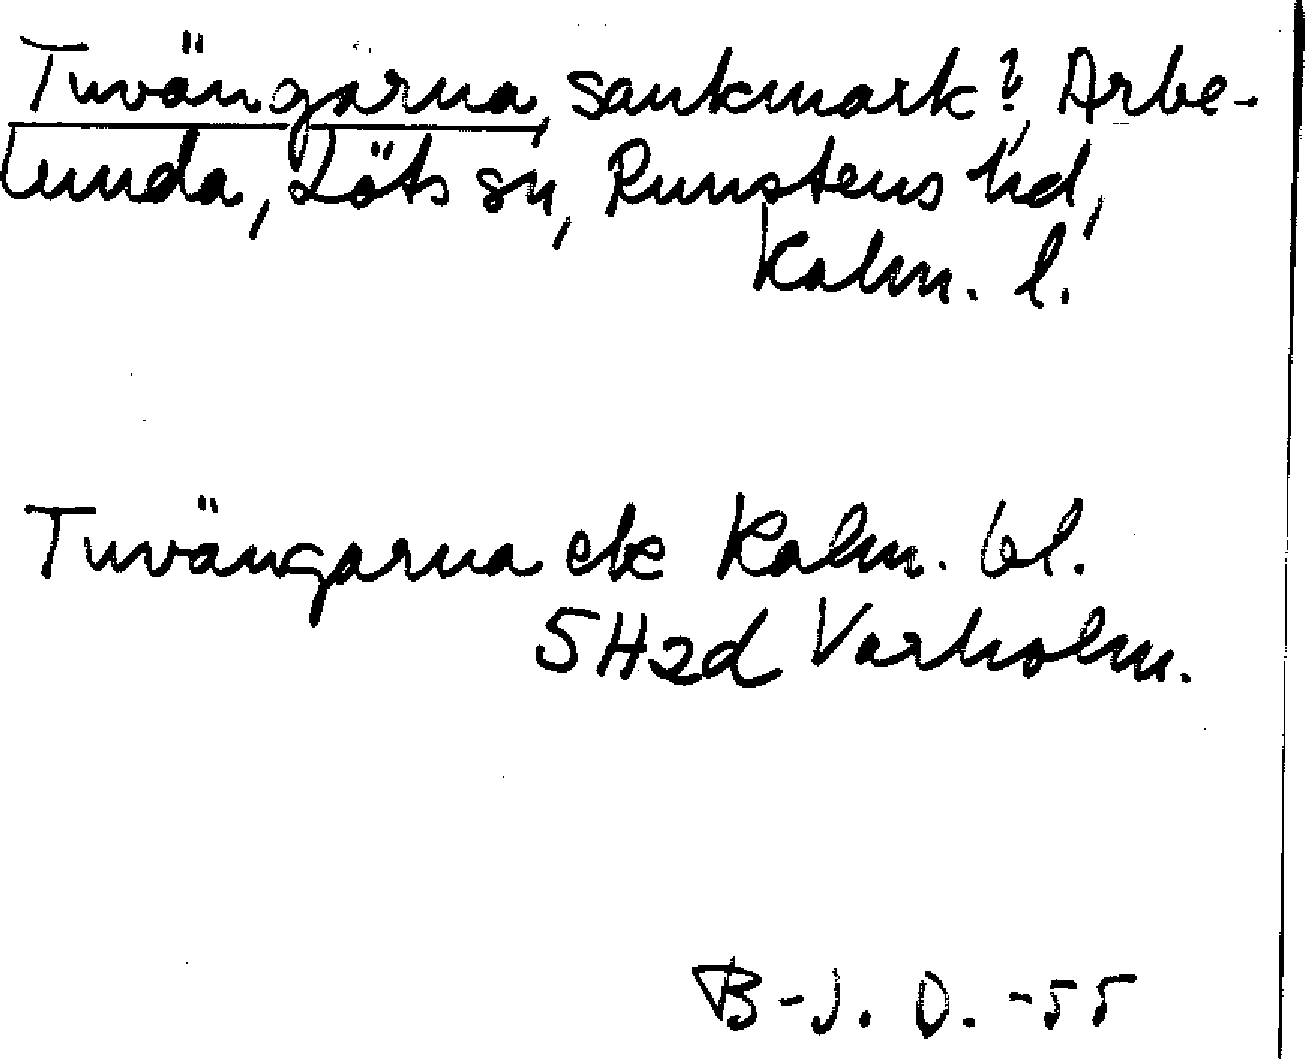 Tuvängarna, sankmark?, Arbe-
lunda, Löts sn, Runstens hd,
Kalm. l.
Tuvängarna ek Kalm. bl.
5H2d Vorholm.
B-J. O. -55